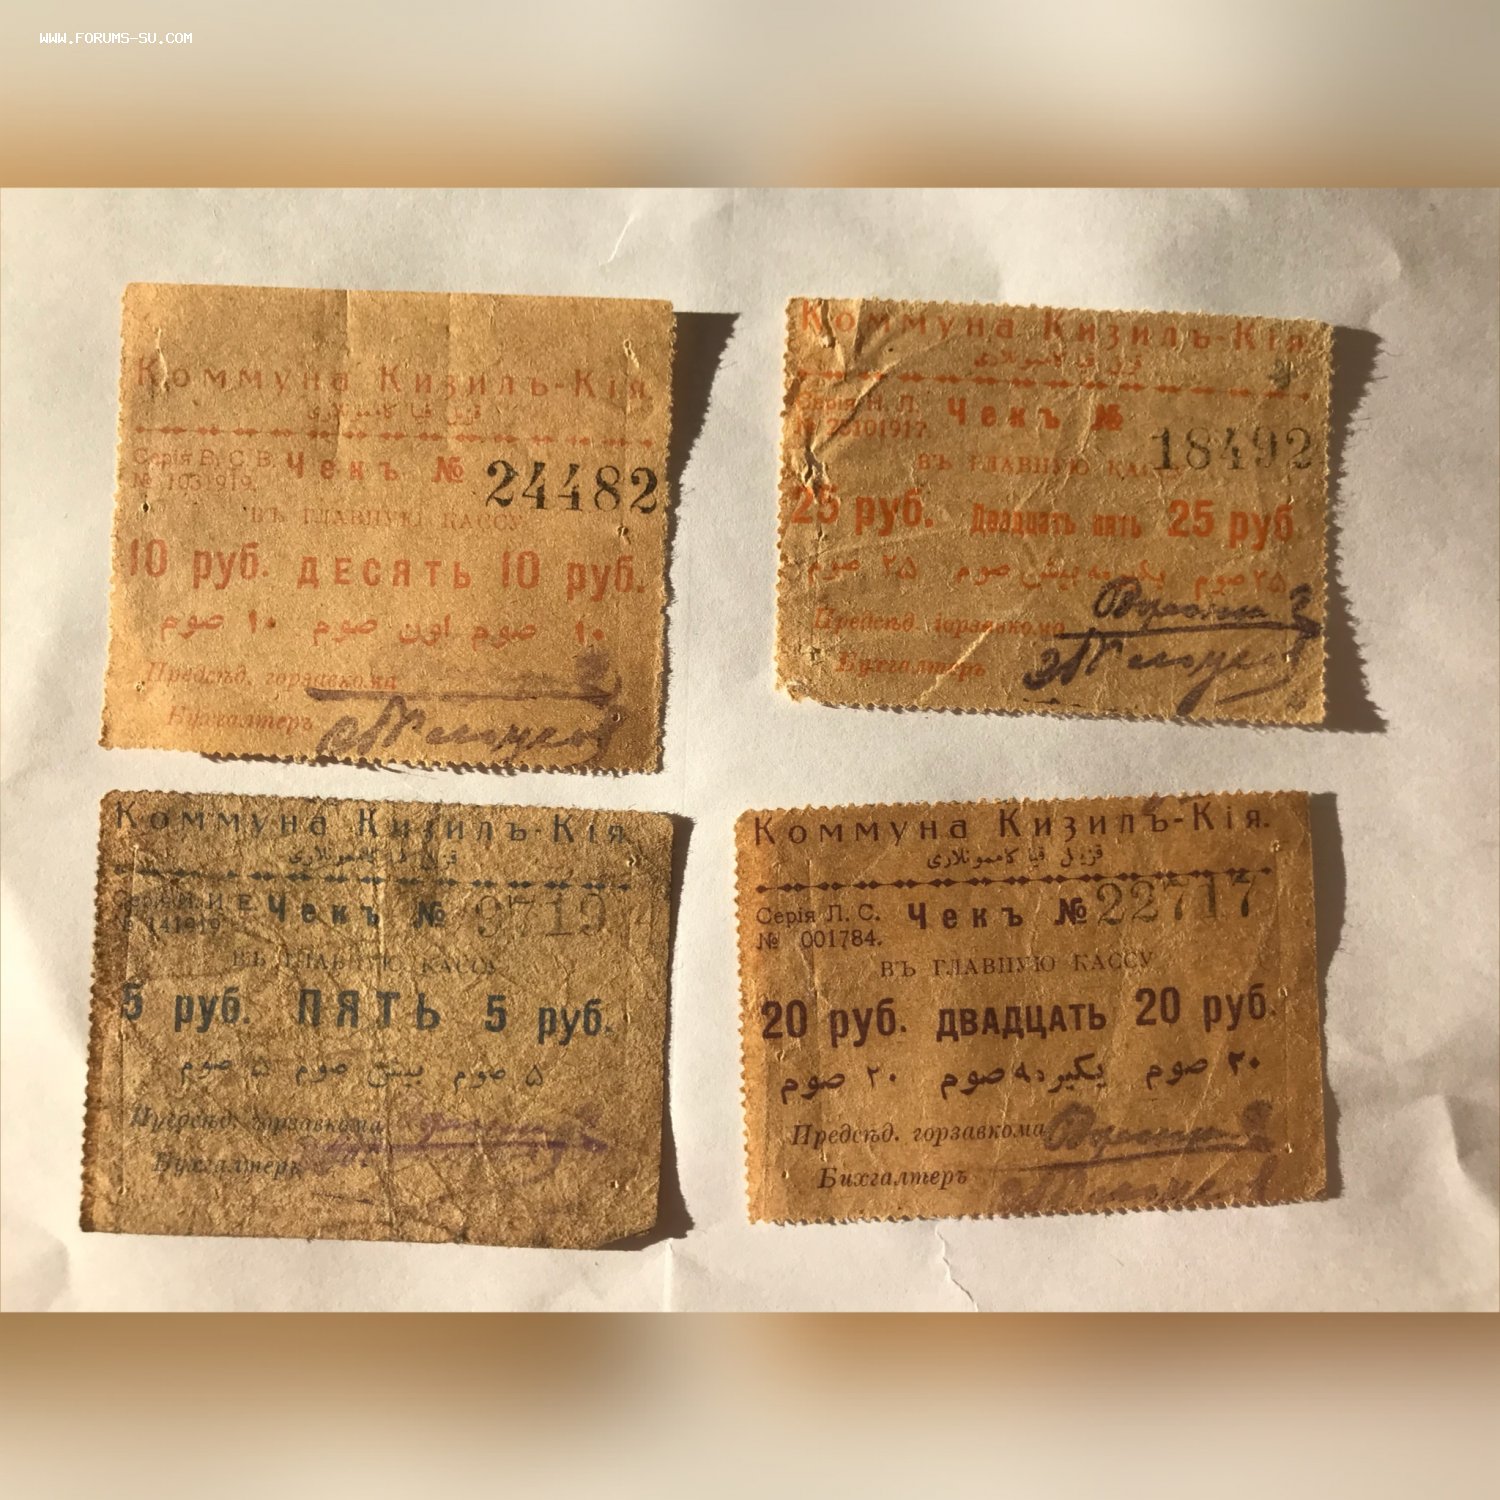 WWW.FORUMS-SU.COM
Коммуна Кизилъ-Кія.
قزیل قیا کاممونلاری
Серія В. С. В. Чекъ № 24482
№ 1031919.
ВЪ ГЛАВНУЮ КАССУ
10 руб. ДЕСЯТЬ 10 руб.
۱۰ صوم اون صوم ۱۰ صوم
Предсѣд. горзавкома
Бухгалтеръ
Коммуна Кизилъ-Кія.
قزیل قیا کاممونلاری
Серія Н. Л. Чекъ № 18492
№ 25101917.
ВЪ ГЛАВНУЮ КАССУ
25 руб. Двадцать пять 25 руб.
۲۵ صوم یکیرمه بیش صوم ۲۵ صوم
Предсѣд. горзавкома
Бухгалтеръ
Коммуна Кизилъ-Кія.
قزیل قیا کاممونلاری
Серія Н. И. Е. Чекъ № 9719
№ 141919.
ВЪ ГЛАВНУЮ КАССУ
5 руб. ПЯТЬ 5 руб.
۵ صوم بیش صوم ۵ صوم
Предсѣд. горзавкома
Бухгалтеръ
Коммуна Кизилъ-Кія.
قزیل قیا کاممونلاری
Серія Л. С. Чекъ № 22717
№ 001784.
ВЪ ГЛАВНУЮ КАССУ
20 руб. ДВАДЦАТЬ 20 руб.
۲۰ صوم یکیرمه صوم ۲۰ صوم
Предсѣд. горзавкома
Бихгалтеръ